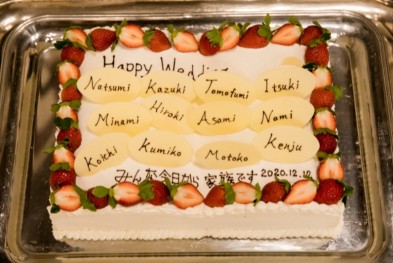 Happy Wedding
Natsumi Kazuki Tomofumi Itsuki
Minami Hiroki Asami Nami
Koichi Kumiko Motoko Kenju
みんな今日から家族です 2020.12.12